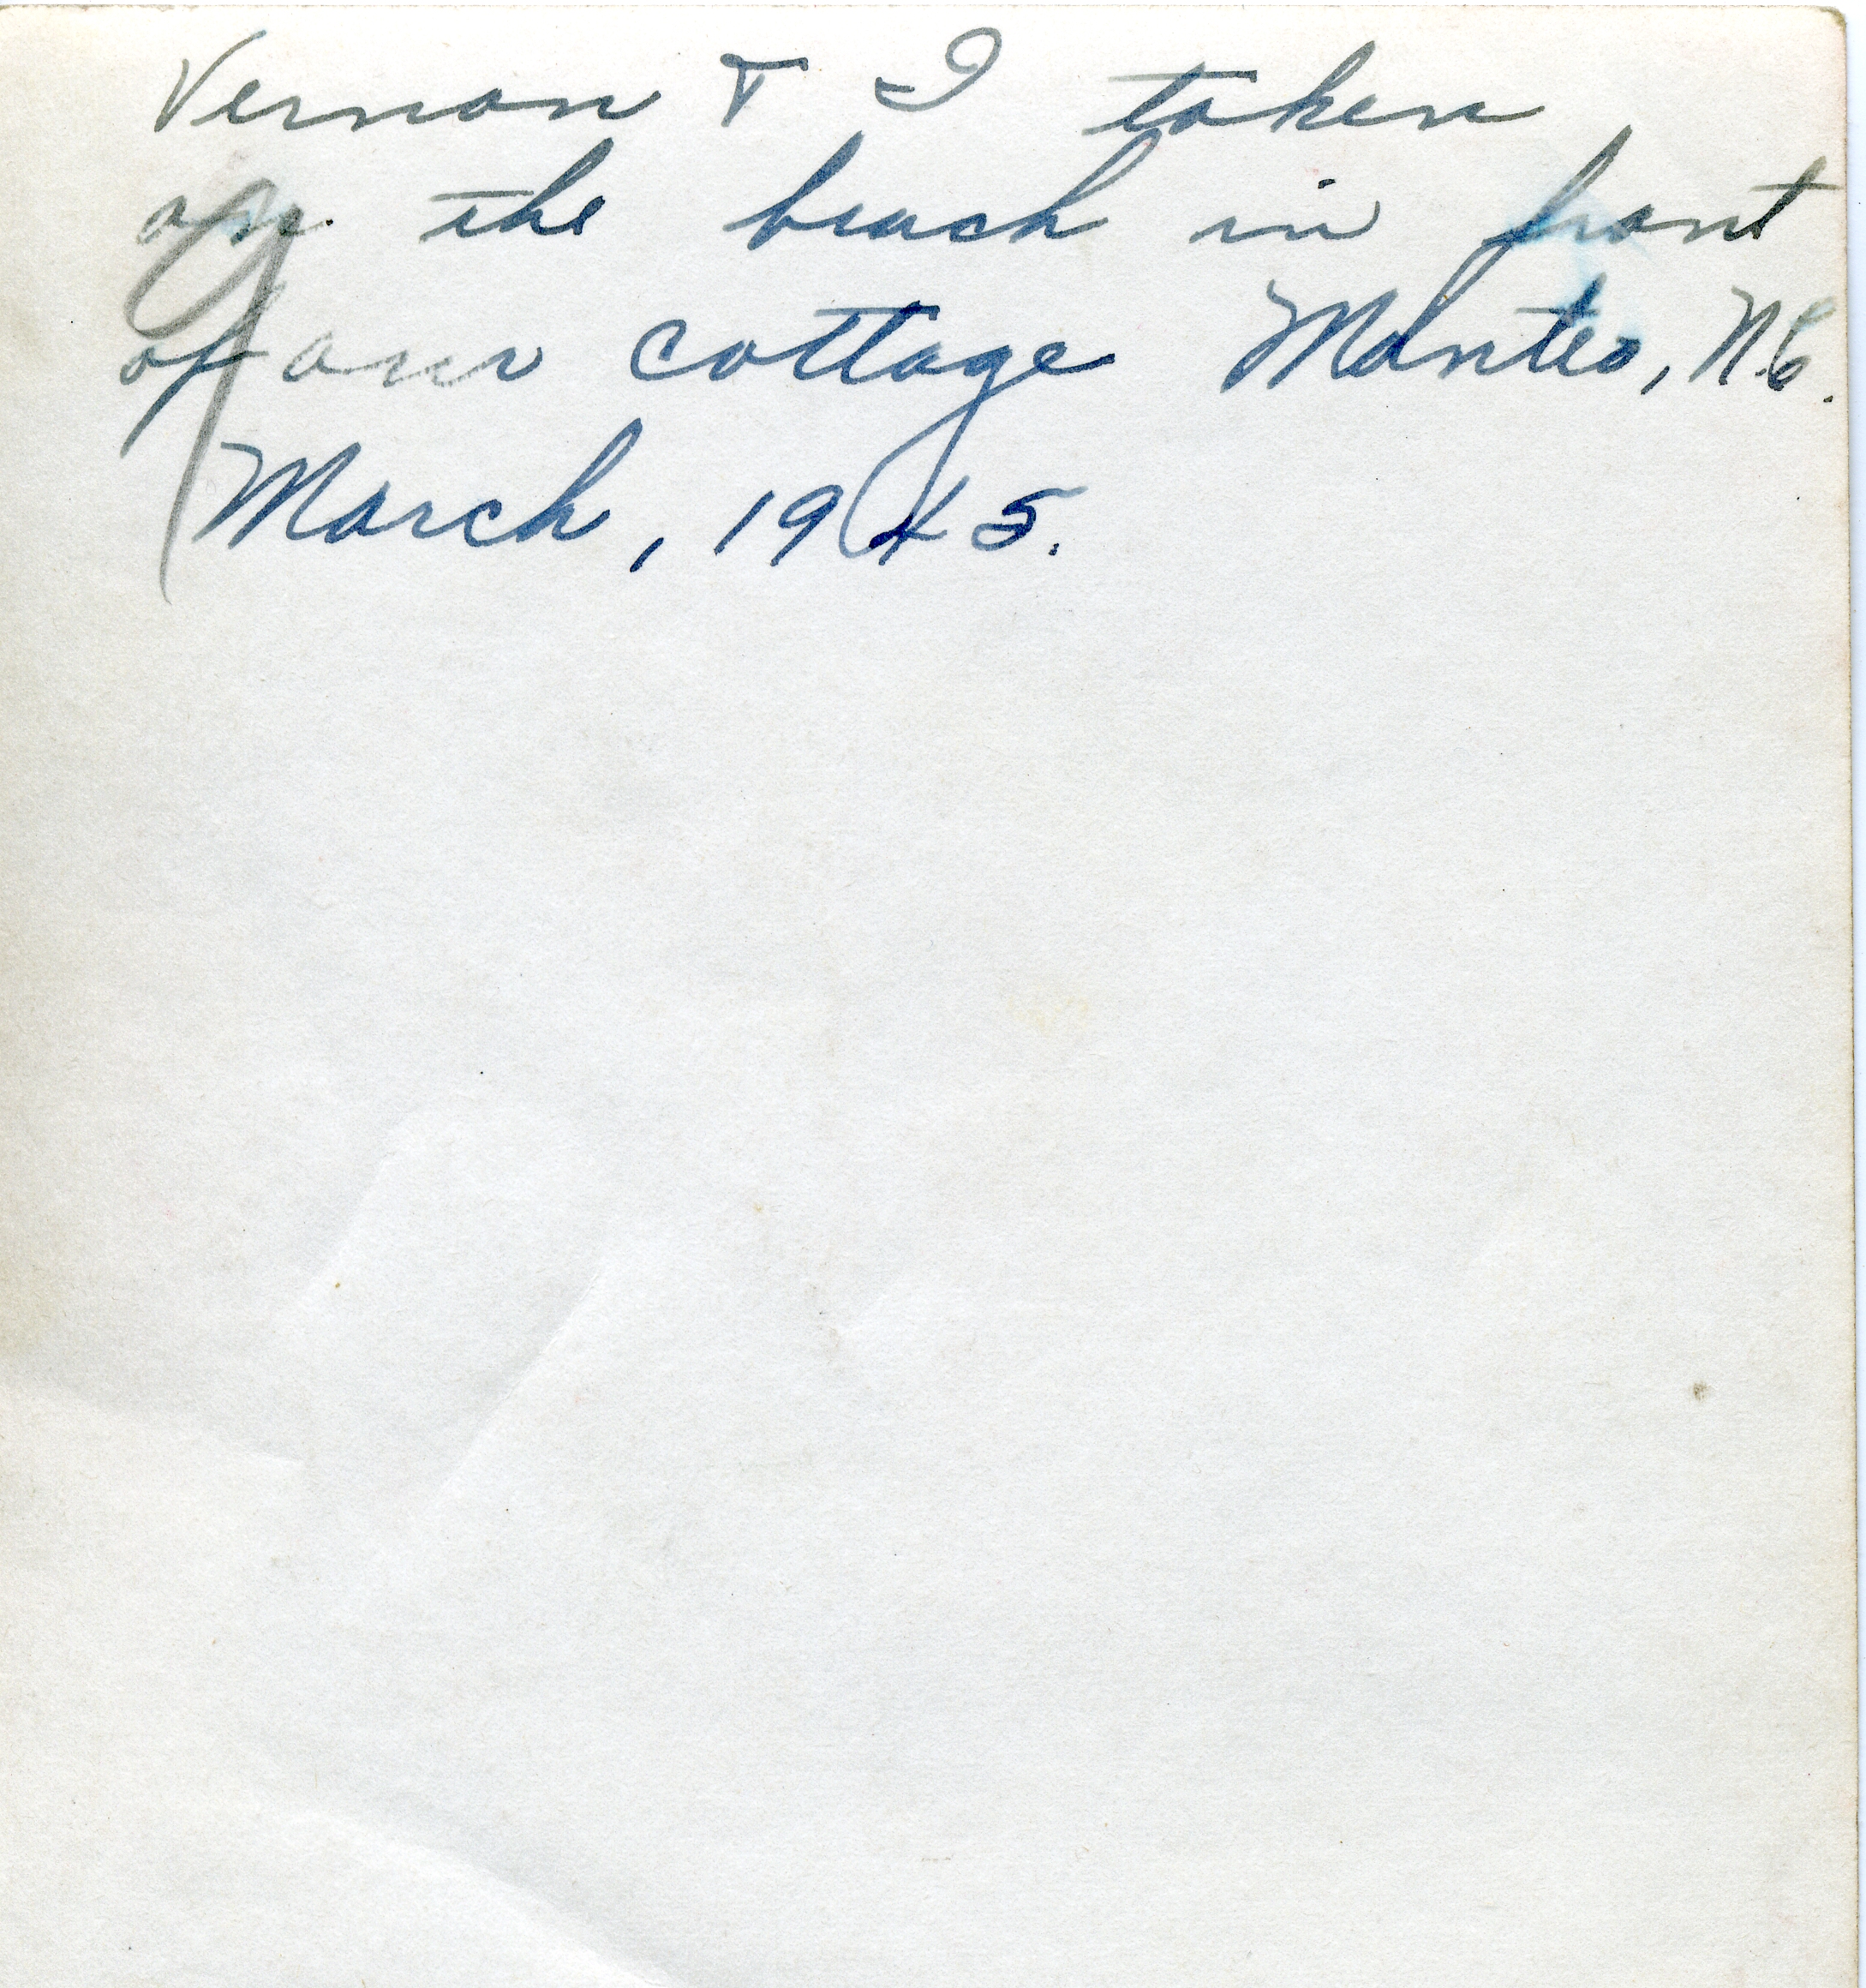 Vernon & I taken
on the beach in front
of our cottage Manteo, N.C.
March, 1945.
9